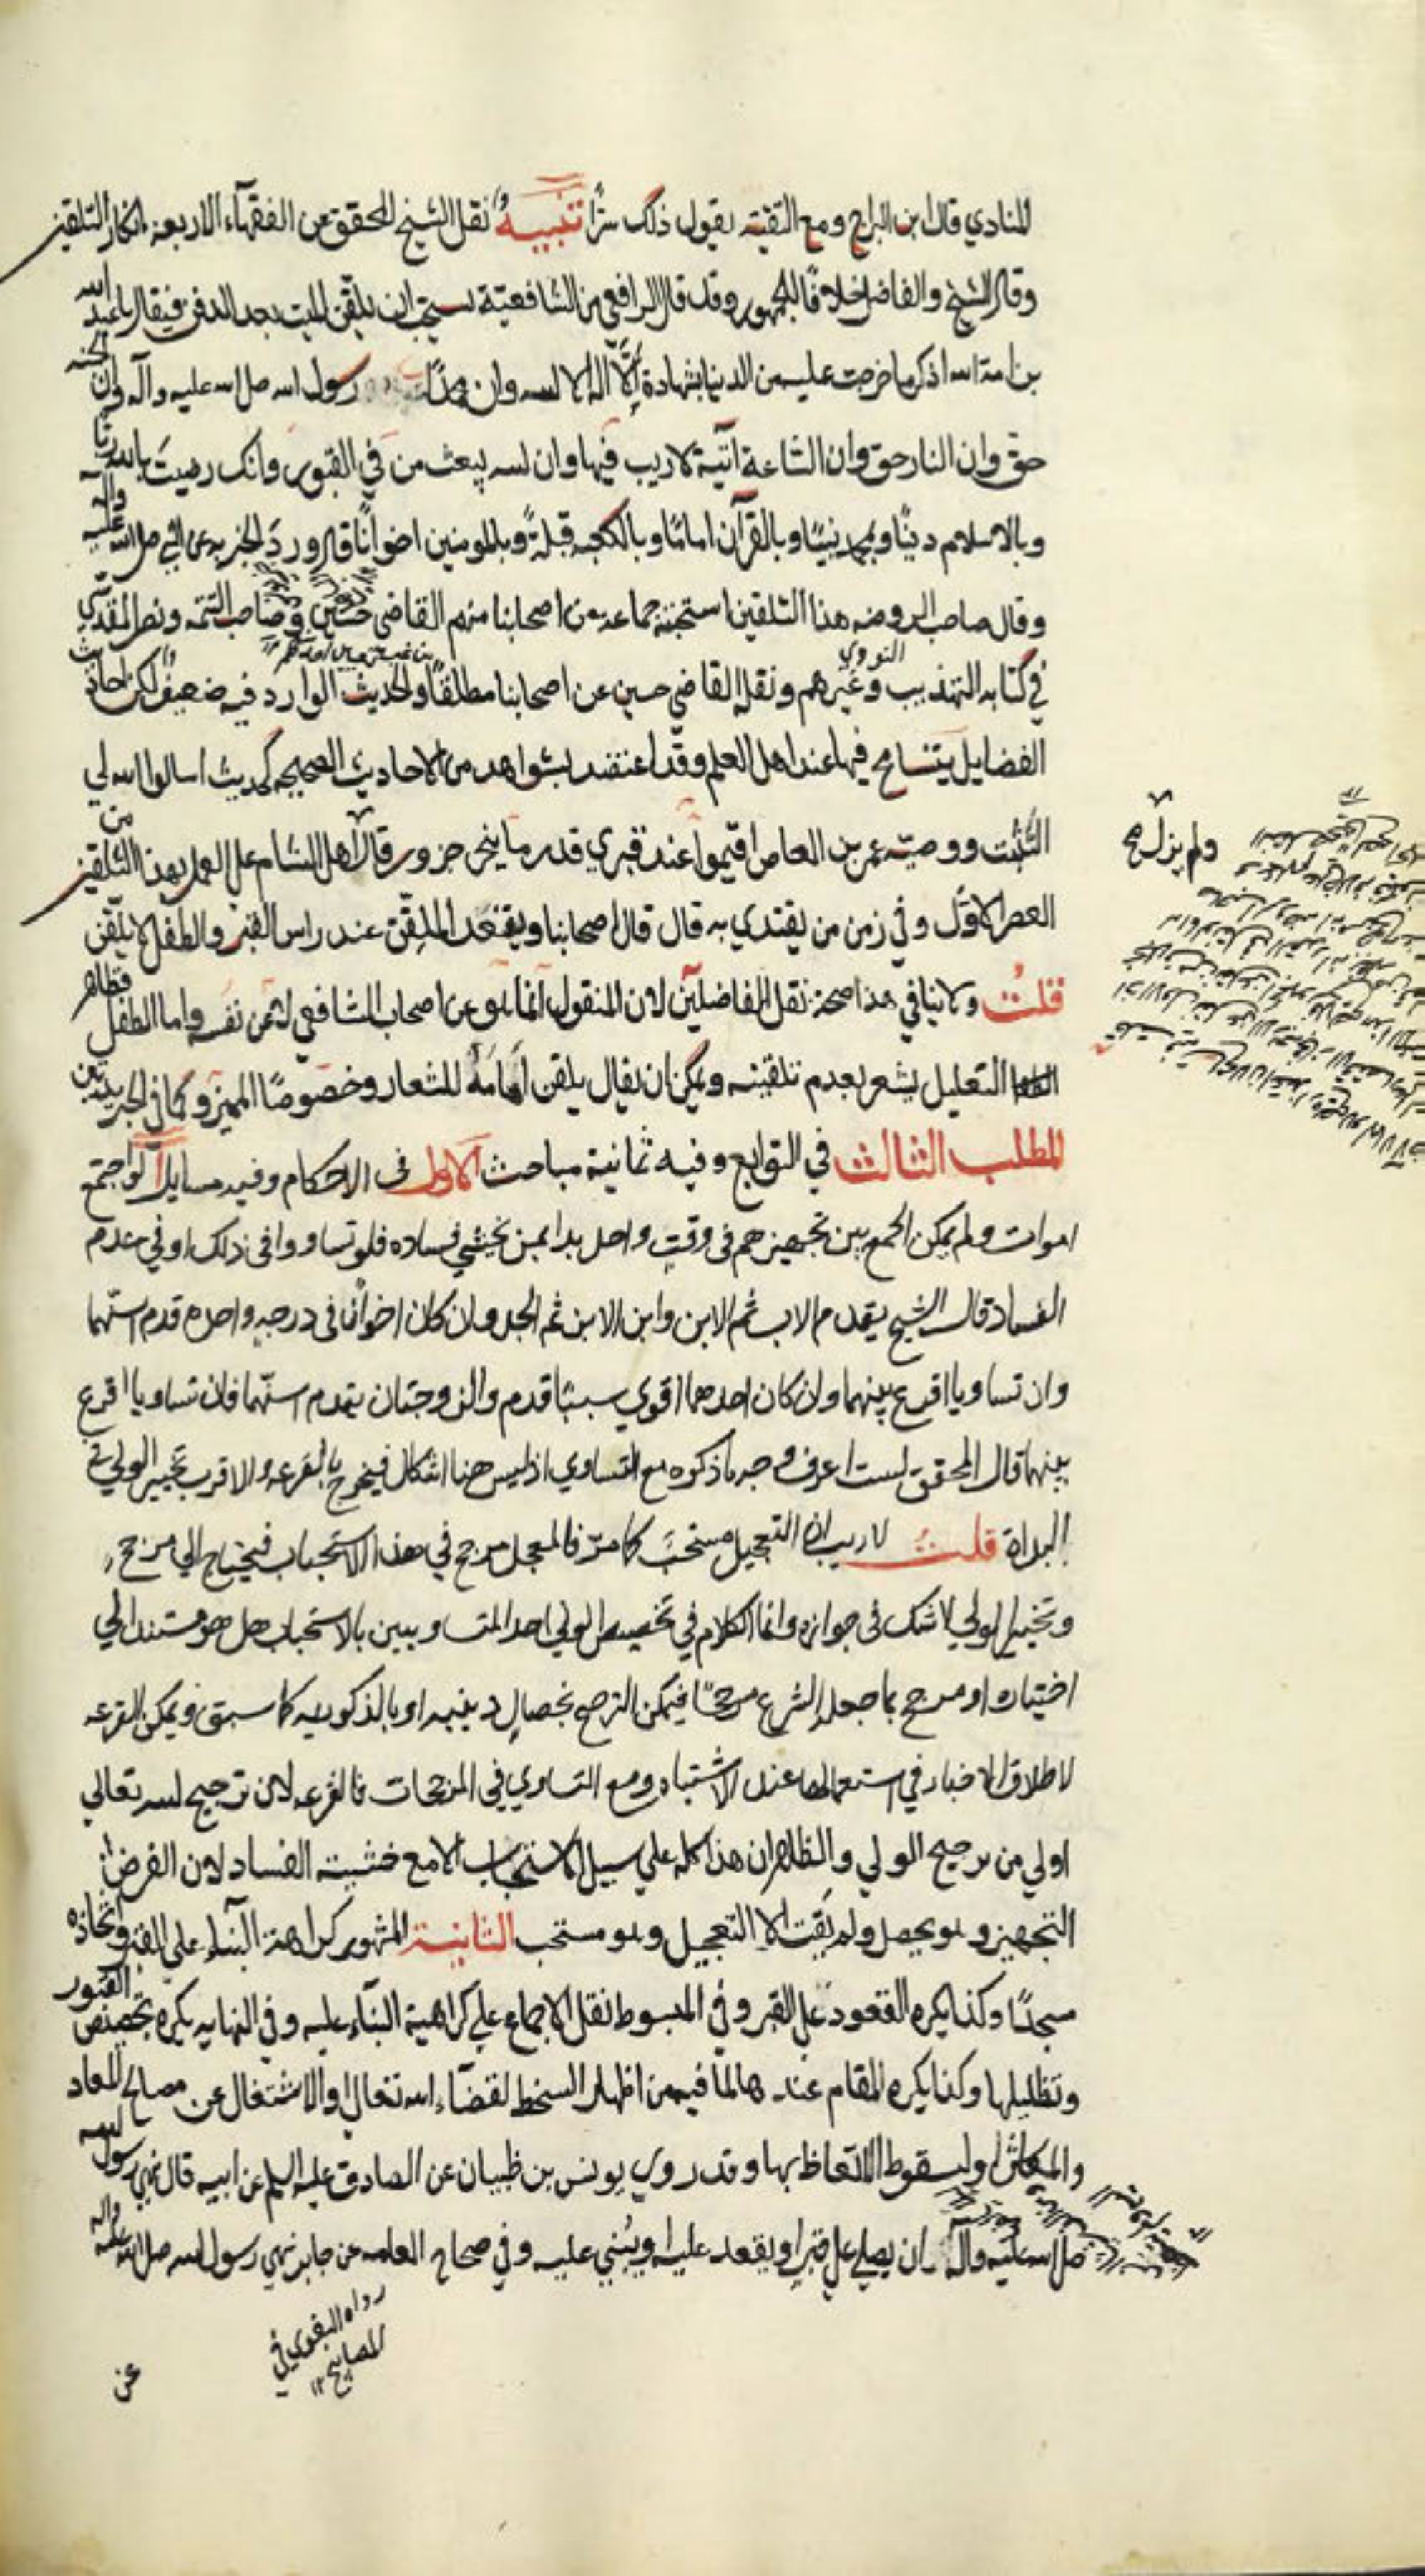 المنادي قال ابن البراج ومع التقية يقول ذلك سرًّا تنبيه نقل الشيخ المحقق عن الفقهآء الاربعه انكار التلقين
وقال الشيخ والفاضل خلافًا للجمهور وقد قال الرافعي من الشافعيّة يستحب ان يلقّن الميت بعد الدفن فيقال يا عبد الله
بن امة الله اذكر ما خرجت عليه من الدنيا شهادة ان لا اله الا الله وان محمدًا رسول الله صلى الله عليه وآله وان الجنه
حق وان النار حق وان الساعة آتية لا ريب فيها وان الله يبعث من في القبور وانك رضيت بالله ربًا
وبالاسلام دينًا وبمحمد نبيًا وبالقرآن امامًا وبالكعبه قبلةً وبالمومنين اخوانًا قال ورد الخبر به عن النبي صلى الله عليه واله
وقال صاحب الروضه هذا التلقين استحبه جماعه من اصحابنا منهم القاضي حسين وصاحب التتمه ونصر المقدسي
في كتابه التهذيب وغيرهم ونقله القاضي حسين عن اصحابنا مطلقًا والحديث الوارد فيه ضعيف لكن احاديث
النووي
الفضايل يتسامح فيها عند اهل العلم وقد اعتضد بشواهد من الاحاديث الصحيحه كحديث اسالوا الله لي
التثبت ووصيّة عمر بن العاص اقيموا عند قبري قدر ما ينحر جزور قال اهل الشام على العمل بهذا التلقين من
ولم يزل صح
العصر الاوّل وفي زمن من يقتدي به قال قال اصحابنا ويقعد الملقّن عند راس القبر والطفل لا يلقّن
قلت ولا ينافي هذا صحة نقل الفاضلين لان المنقول انما هو عن اصحاب الشافعي لا عن نفسه واما الطفل فظاهر
التعليل يشعر بعدم تلقينه ويمكن ان يقال يلقن اقامةً للشعار وخصوصًا المميز وكما في الجريدتين
المطلب الثالث في التوابع وفيه ثمانية مباحث الاول فى الاحكام وفيه مسايل آ لو اجتمع
اموات ولم يمكن الجمع بين تجهيزهم فى وقتٍ واحد بدا بمن يخشي فساده فلو تساووا فى ذلك او في عدم
الفساد قال الشيخ يقدم الاب ثم الابن وابن الابن ثم الجد وان كان اخوان فى درجه واحده قدم اسنّهما
وان تساويا اقرع بينهما وان كان احدهما اقوي سببًا قدم والزوجتان يقدم اسنّهما فان تساويا اقرع
بينهما قال المحقق لست اعرف وجه ما ذكره مع التساوي اذ ليس هنا اشكال فيخرج بالقرعه والاقرب تخيير الولي في
البداة قلت لا ريب ان التعجيل مستحبّ كما مرّ فالمعجل مرجح في هذا الاستحباب فيحتاج الي مرجح
وتخيير الولي لا شك فى جوازه وانما الكلام في تخصيص الولي احد المتساويين بالاستحباب هل هو مستند الي
اختياره او مرجح بما جعله الشرع مرجحًا فيمكن الترجيح بخصالٍ دينيه او بالذكوريه كما سبق ويمكن القرعه
لاطلاق الاخبار في استعمالها عند الاشتباه ومع التساوي في المرجحات فالقرعه لان ترجيح الله تعالي
اولي من ترجيح الولي والظاهر ان هذا كله علي سبيل الاستحباب الا مع خشية الفساد لان الفرض
التجهيز وهو يحصل ولم يبق الا التعجيل وهو مستحب الثانية المشهور كراهة البناء على القبر واتخاذه
مسجدًا وكذا يكره القعود على القبر وفي المبسوط نقل الاجماع علي كراهية البنآء عليه وفي النهايه يكره تجصيص القبور
وتظليلها وكذا يكره المقام عندها لما فيه من اظهار السخط لقضآء الله تعالي او الاشتغال عن مصالح المعاد
والمعاش او لسقوط الاتعاظ بها وقد روي يونس بن ظبيان عن الصادق عليه السلم عن ابيه قال نهي رسول الله
صلى الله عليه واله ان يصلي على قبر او يقعد عليه او يبني عليه وفي صحاح العامه عن جابر نهي رسول الله صلى الله عليه واله
رواه البغوي في
المصابيح ١٢
عن